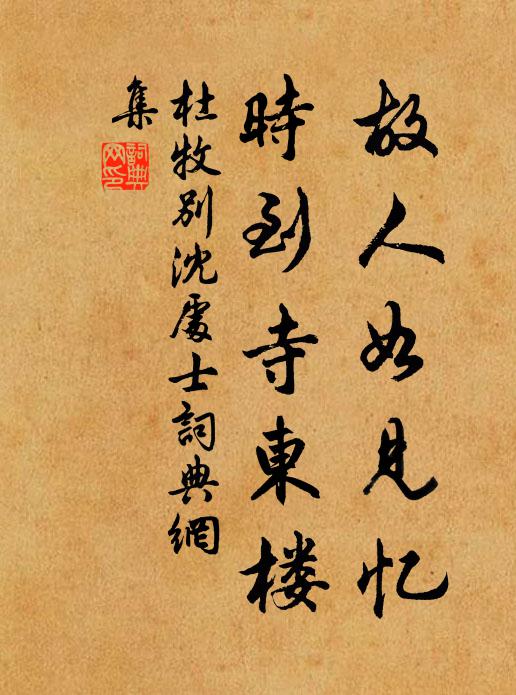 故人如見忆
時到寺東楼
杜牧別沈處士詞典網
集
詞典网印